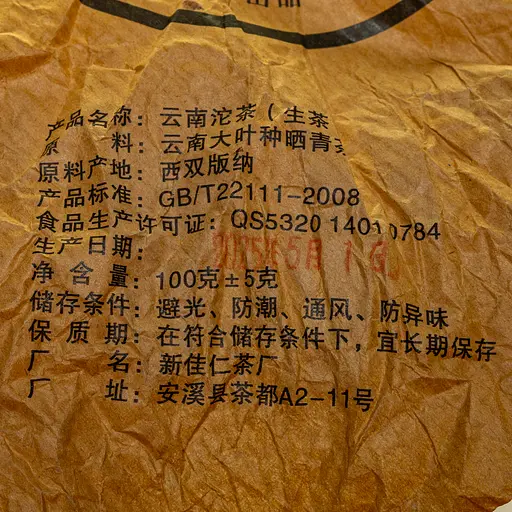 出品
产品名称：云南沱茶（生茶
原 料：云南大叶种晒青
原料产地：西双版纳
产品标准：GB/T22111-2008
食品生产许可证：QS5320 1401 0784
生产日期：
净 含 量：100克±5克
储存条件：避光、防潮、通风、防异味
保 质 期：在符合储存条件下，宜长期保存
厂 名：新佳仁茶厂
厂 址：安溪县茶都A2-11号